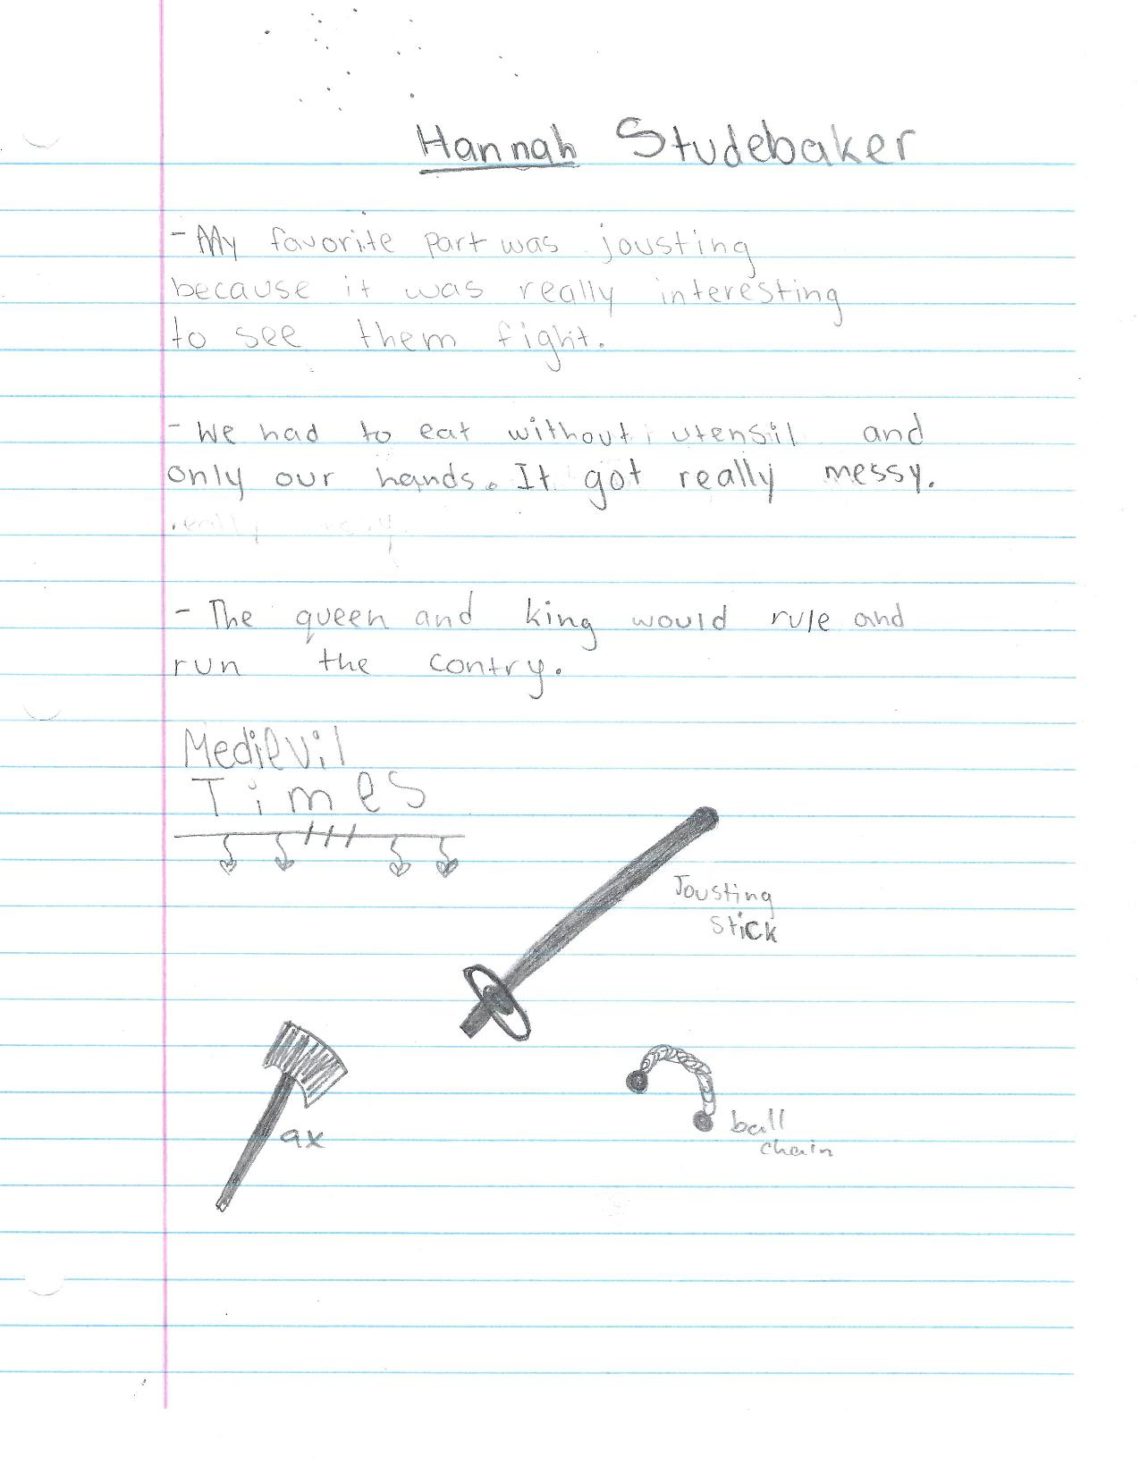 Hannah Studebaker
- My favorite part was jousting
because it was really interesting
to see them fight.
- We had to eat without utensil and
only our hands. It got really messy.
- The queen and king would rule and
run the contry.
Medievil
Times
Jousting
stick
ax
ball
chain